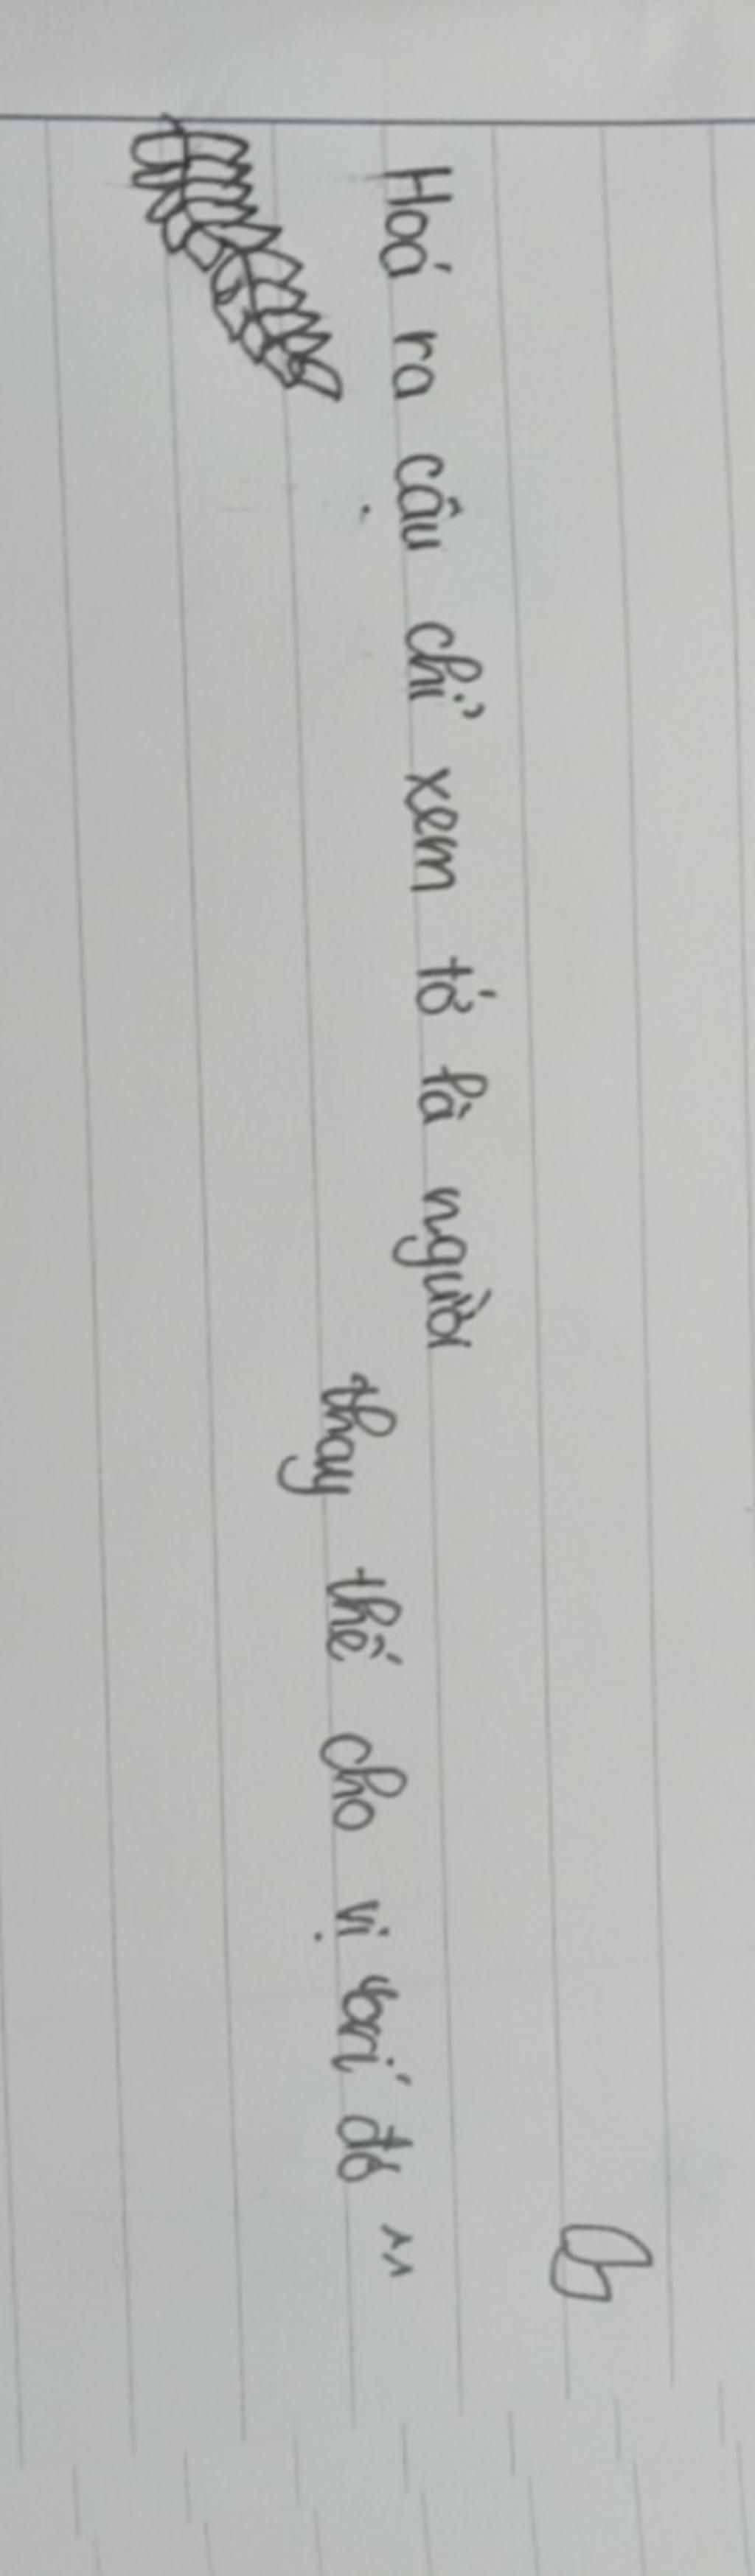 Hoá ra câu chỉ xem tớ là người
thay thế cho vị trí đó "